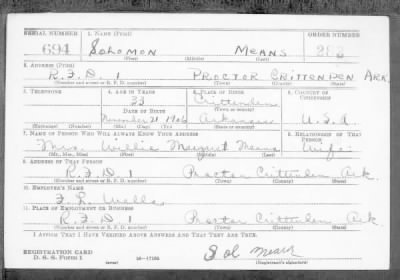 SERIAL NUMBER 1. NAME (Print) ORDER NUMBER
694 SOLOMON MEANS 283
(First) (Middle) (Last)
2. ADDRESS (Print)
R.F.D. 1 PROCTOR CRITTENDEN ARK.
(Number and street or R. F. D. number) (Town) (County) (State)
3. TELEPHONE 4. AGE IN YEARS 5. PLACE OF BIRTH 6. COUNTRY OF CITIZENSHIP
33 Crittenden
DATE OF BIRTH (Town or county)
November 21 1906 Arkansas U.S.A.
(Exchange) (Number) (Mo.) (Day) (Yr.) (State or country)
7. NAME OF PERSON WHO WILL ALWAYS KNOW YOUR ADDRESS 8. RELATIONSHIP OF THAT PERSON
Mrs. Willie Margret Means Wife
(Mr., Mrs., Miss) (First) (Middle) (Last)
9. ADDRESS OF THAT PERSON
R.F.D. 1 Proctor Crittenden Ark.
(Number and street or R. F. D. number) (Town) (County) (State)
10. EMPLOYER'S NAME
F. L. Wells
11. PLACE OF EMPLOYMENT OR BUSINESS
R.F.D. 1 Proctor Crittenden Ark.
(Number and street or R. F. D. number) (Town) (County) (State)
I AFFIRM THAT I HAVE VERIFIED ABOVE ANSWERS AND THAT THEY ARE TRUE.
REGISTRATION CARD
D. S. S. Form 1 16—17105 Sol Means
(Registrant's signature)